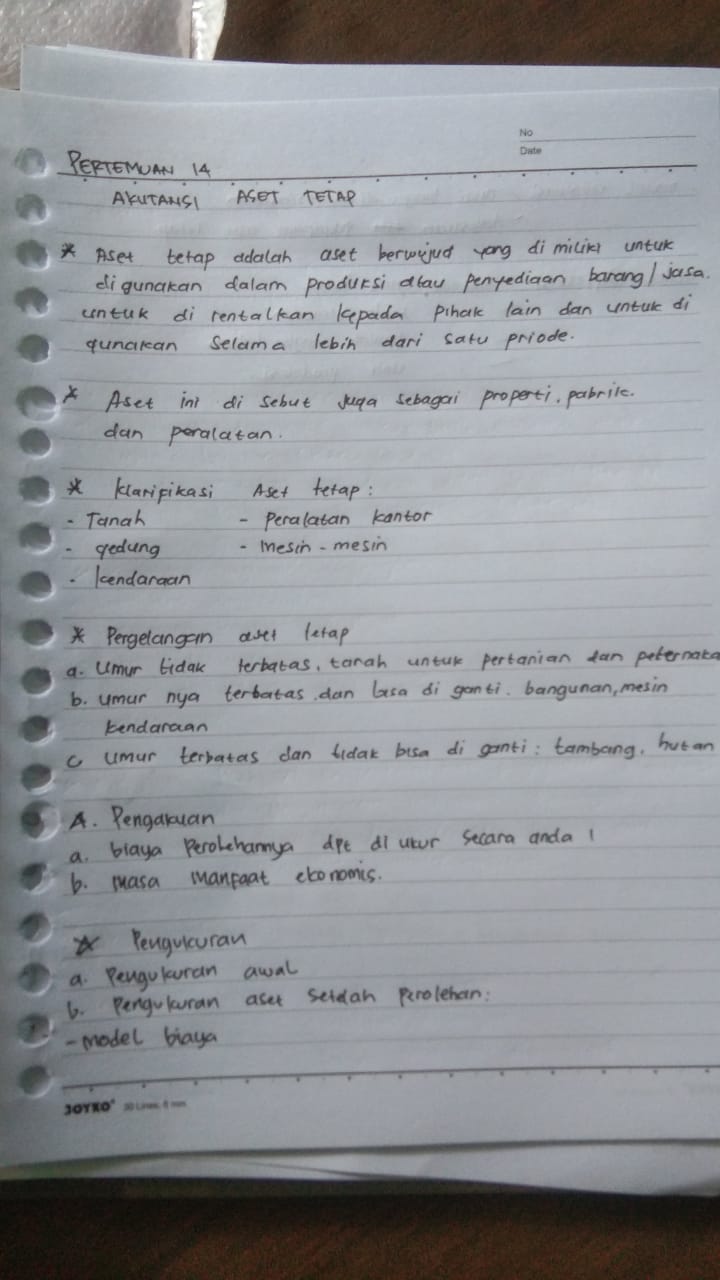 No
Date
PERTEMUAN 14
AKUTANSI ASET TETAP
* Aset tetap adalah aset berwujud yang di miliki untuk
di gunakan dalam produksi atau penyediaan barang/jasa.
untuk di rentalkan kepada pihak lain dan untuk di
gunakan selama lebih dari satu priode.
* Aset ini di sebut juga sebagai properti, pabrik.
dan peralatan.
* klarifikasi Aset tetap :
- Tanah - peralatan kantor
- gedung - mesin - mesin
- kendaraan
* Pergelangan aset tetap
a. Umur tidak terbatas, tanah untuk pertanian dan peternaka
b. umur nya terbatas dan bisa di ganti. bangunan, mesin
kendaraan
c umur terbatas dan tidak bisa di ganti : tambang, hutan
A. Pengakuan
a. biaya perolehannya dpt di ukur secara anda l
b. masa manfaat ekonomis.
* Pengukuran
a. pengukuran awal
b. pengukuran aset setelah perolehan :
- model biaya
JOYKO 30 Lines, 8 mm